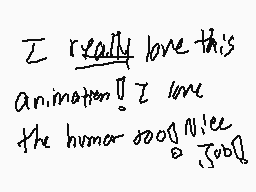 I really love this
animation! I love
the humor too! Nice
Job!